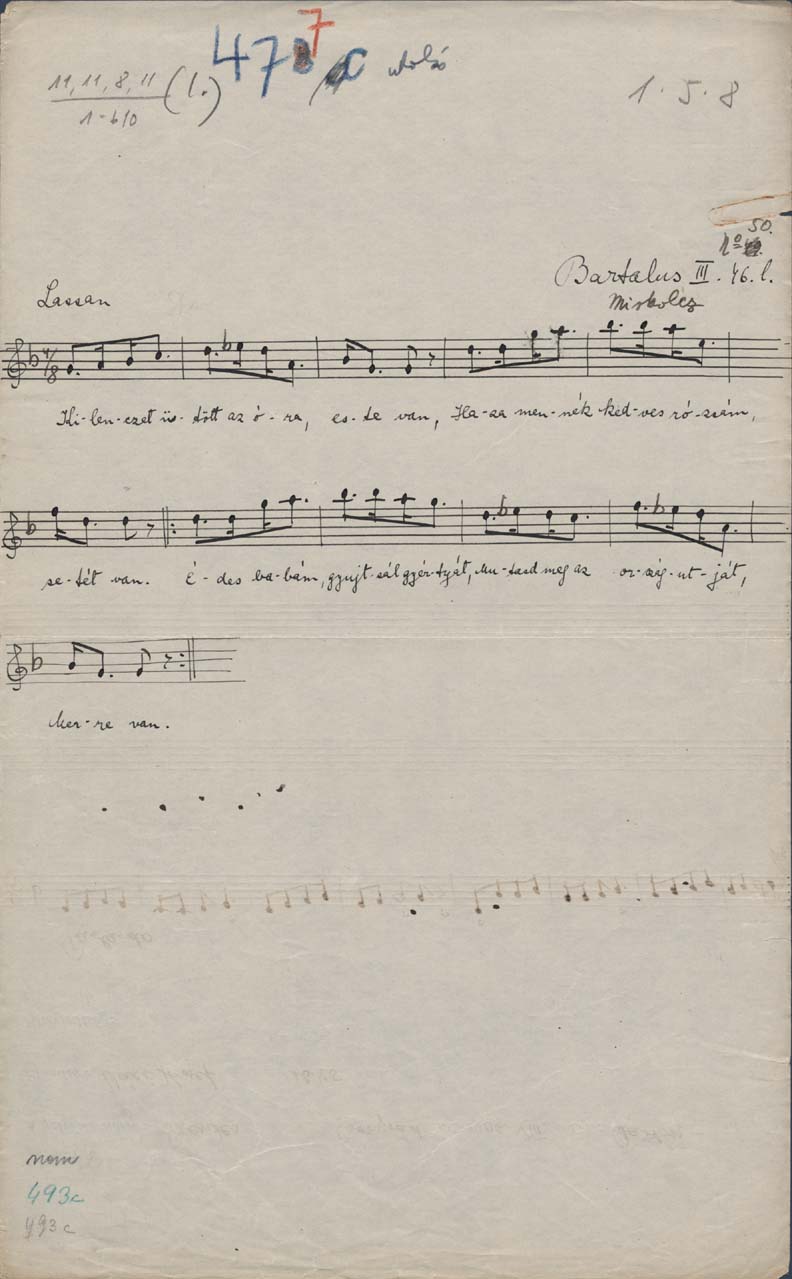 11, 11, 8, 11 (l.)
1-b10
4787 c utolsó
1. 5. 8
50.
Bartalus III. 46. l.
Miskolcz
Lassan
4/8
Ki-len-czet üs-tött az ó-ra, es-te van, Ha-za men-nék ked-ves ró-zsám,
se-tét van. É-des ba-bám, gyujt-sál gyér-tyát, Mu-tasd meg az or-szág-ut-ját,
Mer-re van.
nom
493c
493c